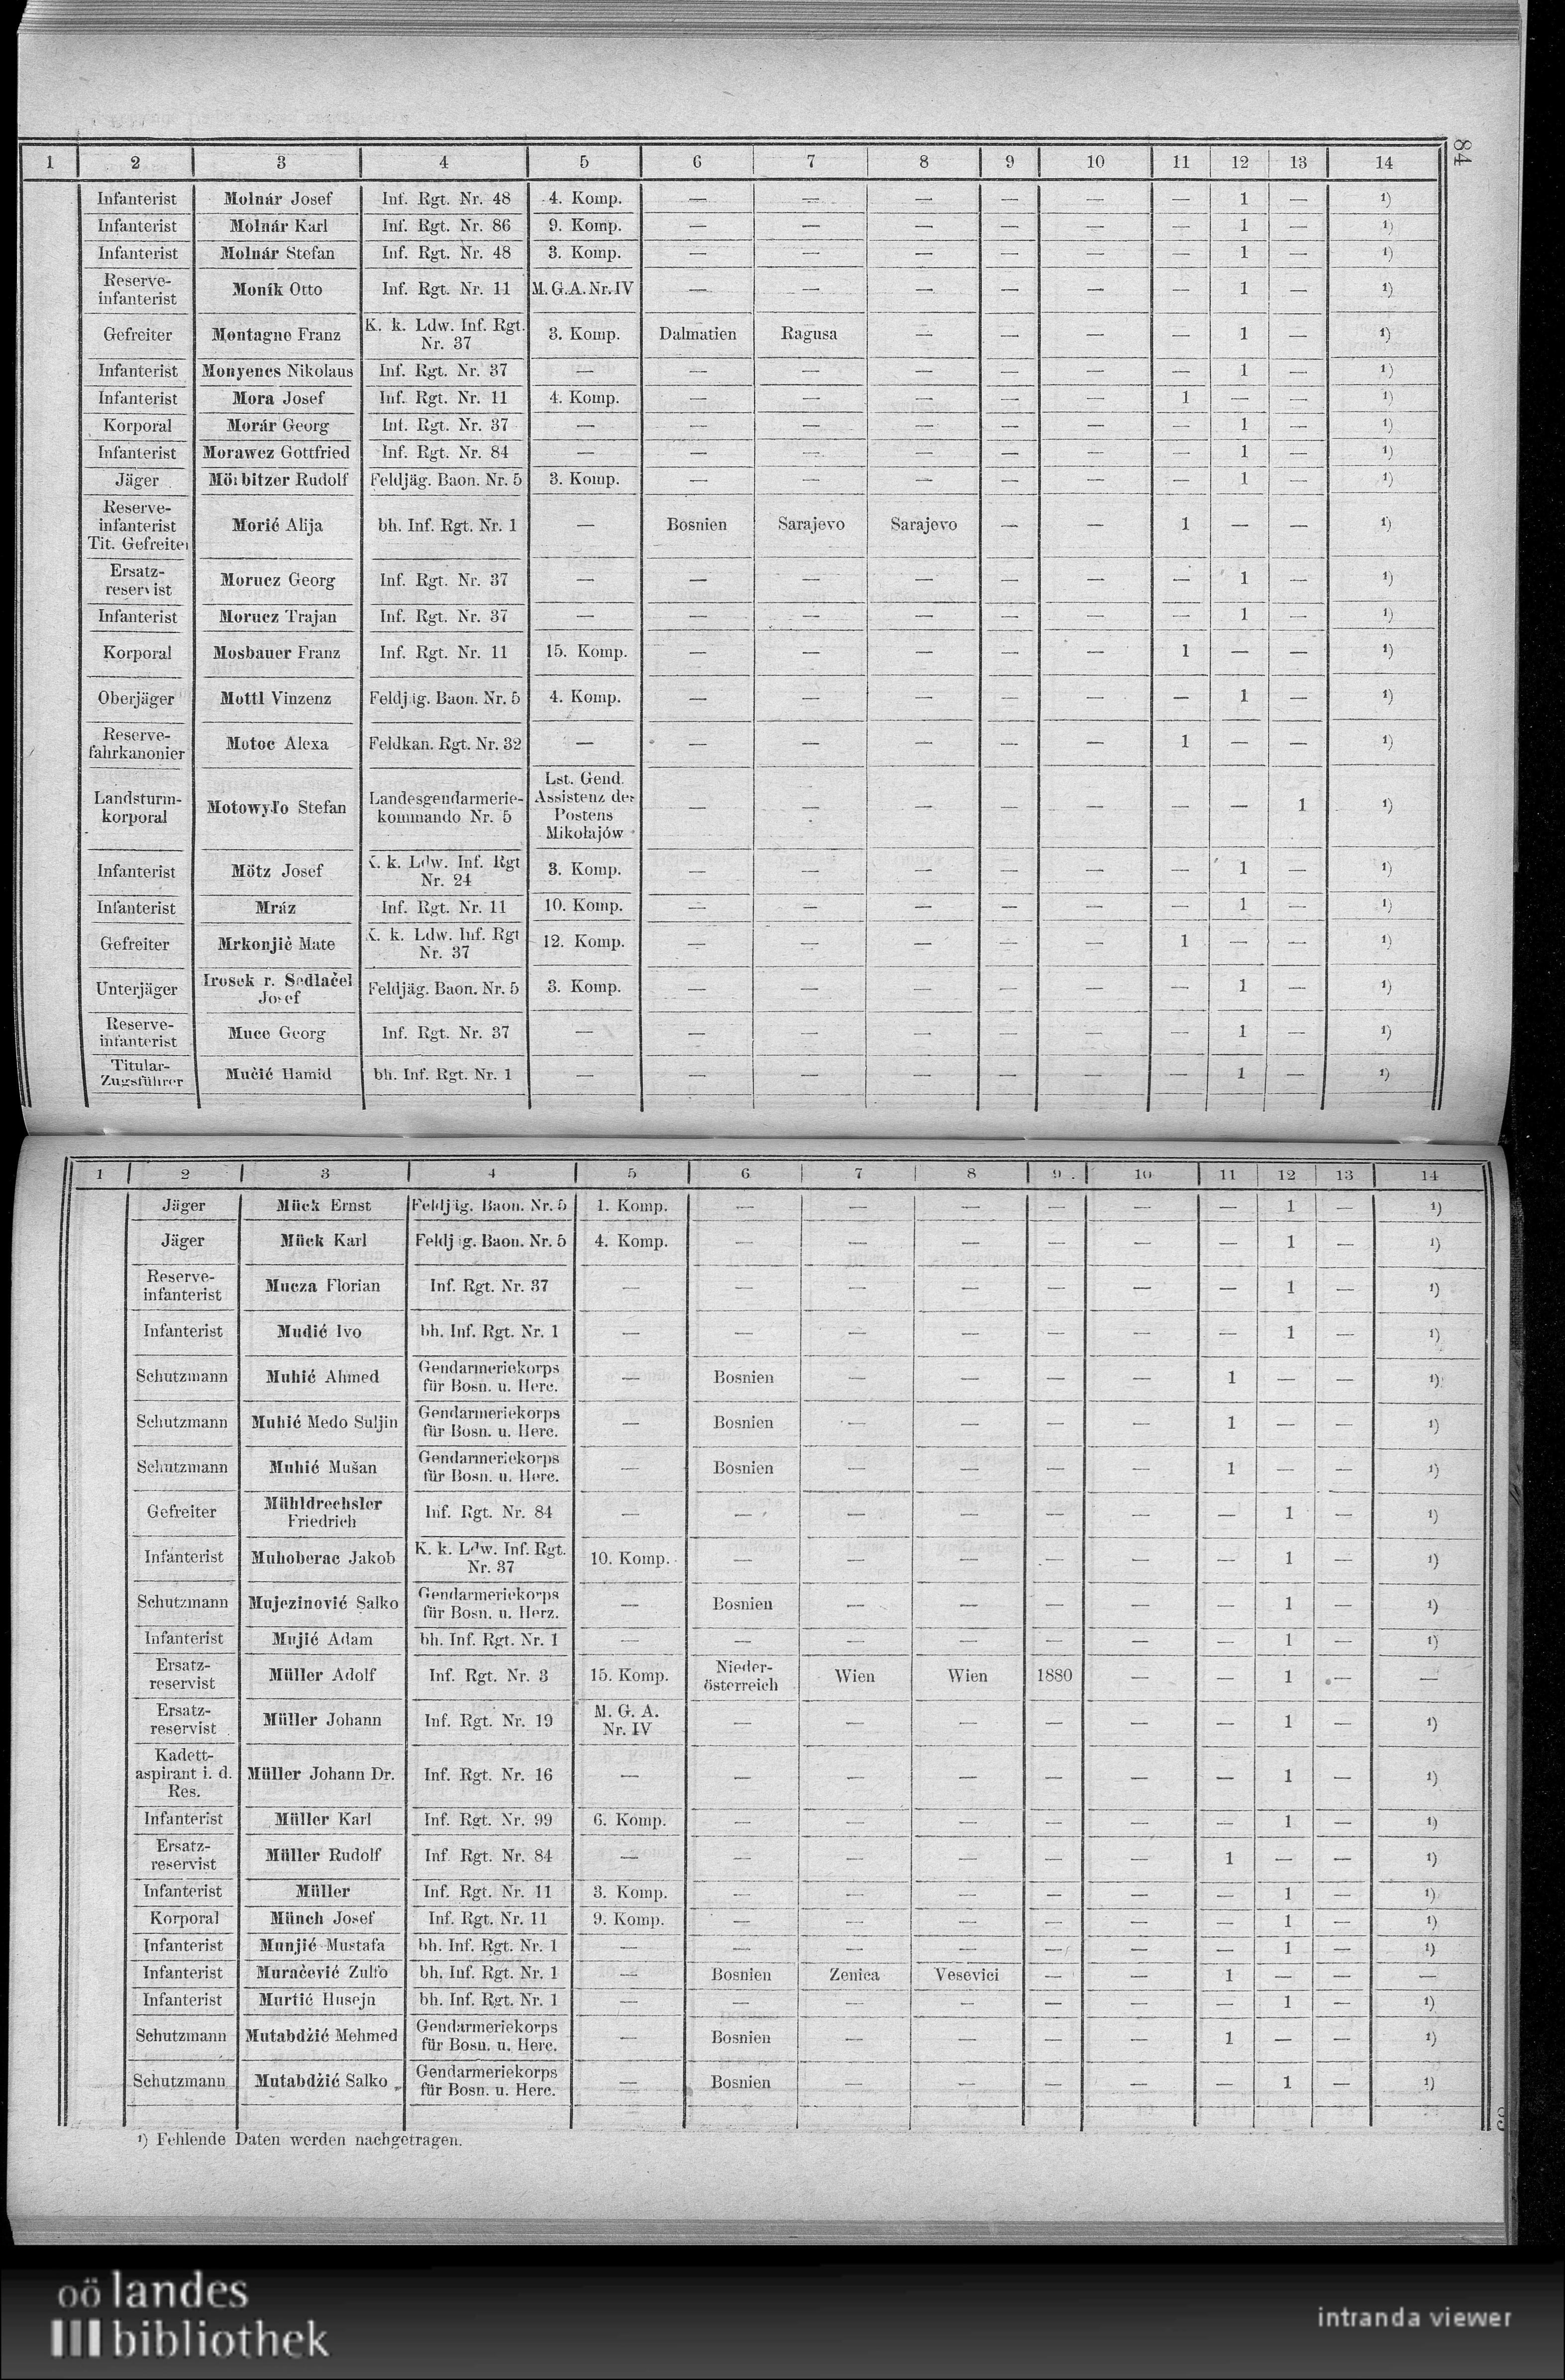 84
1 2 3 4 5 6 7 8 9 10 11 12 13 14
Infanterist Molnár Josef Inf. Rgt. Nr. 48 4. Komp. — — — — — — 1 — ¹)
Infanterist Molnár Karl Inf. Rgt. Nr. 86 9. Komp. — — — — — — 1 — ¹)
Infanterist Molnár Stefan Inf. Rgt. Nr. 48 3. Komp. — — — — — — 1 — ¹)
Reserve-
infanterist Moník Otto Inf. Rgt. Nr. 11 M. G. A. Nr. IV — — — — — — 1 — ¹)
Gefreiter Montagne Franz K. k. Ldw. Inf. Rgt.
Nr. 37 3. Komp. Dalmatien Ragusa — — — — 1 — ¹)
Infanterist Monyencs Nikolaus Inf. Rgt. Nr. 37 — — — — — — — 1 — ¹)
Infanterist Mora Josef Inf. Rgt. Nr. 11 4. Komp. — — — — — 1 — — ¹)
Korporal Morár Georg Inf. Rgt. Nr. 37 — — — — — — — 1 — ¹)
Infanterist Morawez Gottfried Inf. Rgt. Nr. 84 — — — — — — — 1 — ¹)
Jäger Mörbitzer Rudolf Feldjäg. Baon. Nr. 5 3. Komp. — — — — — — 1 — ¹)
Reserve-
infanterist
Tit. Gefreiter Morić Alija bh. Inf. Rgt. Nr. 1 — Bosnien Sarajevo Sarajevo — — 1 — — ¹)
Ersatz-
reservist Morucz Georg Inf. Rgt. Nr. 37 — — — — — — — 1 — ¹)
Infanterist Morucz Trajan Inf. Rgt. Nr. 37 — — — — — — — 1 — ¹)
Korporal Mosbauer Franz Inf. Rgt. Nr. 11 15. Komp. — — — — — 1 — — ¹)
Oberjäger Mottl Vinzenz Feldjäg. Baon. Nr. 5 4. Komp. — — — — — — 1 — ¹)
Reserve-
fahrkanonier Motoc Alexa Feldkan. Rgt. Nr. 32 — — — — — — 1 — — ¹)
Landsturm-
korporal Motowyło Stefan Landesgendarmerie-
kommando Nr. 5 Lst. Gend.
Assistenz des
Postens
Mikołajów — — — — — — — 1 ¹)
Infanterist Mötz Josef K. k. Ldw. Inf. Rgt
Nr. 24 3. Komp. — — — — — — 1 — ¹)
Infanterist Mráz Inf. Rgt. Nr. 11 10. Komp. — — — — — — 1 — ¹)
Gefreiter Mrkonjić Mate K. k. Ldw. Inf. Rgt
Nr. 37 12. Komp. — — — — — 1 — — ¹)
Unterjäger r. Sedlaček
Josef Feldjäg. Baon. Nr. 5 3. Komp. — — — — — — 1 — ¹)
Reserve-
infanterist Muce Georg Inf. Rgt. Nr. 37 — — — — — — — 1 — ¹)
Titular-
Zugsführer Mučić Hamid bh. Inf. Rgt. Nr. 1 — — — — — — — 1 — ¹)
1 2 3 4 5 6 7 8 9 10 11 12 13 14
Jäger Mück Ernst Feldjäg. Baon. Nr. 5 1. Komp. — — — — — — 1 — ¹)
Jäger Mück Karl Feldjäg. Baon. Nr. 5 4. Komp. — — — — — — 1 — ¹)
Reserve-
infanterist Mucza Florian Inf. Rgt. Nr. 37 — — — — — — — 1 — ¹)
Infanterist Mudić Ivo bh. Inf. Rgt. Nr. 1 — — — — — — — 1 — ¹)
Schutzmann Muhić Ahmed Gendarmeriekorps
für Bosn. u. Herc. — Bosnien — — — — 1 — — ¹)
Schutzmann Muhić Medo Suljin Gendarmeriekorps
für Bosn. u. Herc. — Bosnien — — — — 1 — — ¹)
Schutzmann Muhić Mušan Gendarmeriekorps
für Bosn. u. Herc. — Bosnien — — — — 1 — — ¹)
Gefreiter Mühldrechsler
Friedrich Inf. Rgt. Nr. 84 — — — — — — — 1 — ¹)
Infanterist Muhoberac Jakob K. k. Ldw. Inf. Rgt.
Nr. 37 10. Komp. — — — — — — 1 — ¹)
Schutzmann Mujezinović Salko Gendarmeriekorps
für Bosn. u. Herz. — Bosnien — — — — — 1 — ¹)
Infanterist Mujić Adam bh. Inf. Rgt. Nr. 1 — — — — — — — 1 — ¹)
Ersatz-
reservist Müller Adolf Inf. Rgt. Nr. 3 15. Komp. Nieder-
österreich Wien Wien 1880 — — 1 — —
Ersatz-
reservist Müller Johann Inf. Rgt. Nr. 19 M. G. A.
Nr. IV — — — — — — 1 — ¹)
Kadett-
aspirant i. d.
Res. Müller Johann Dr. Inf. Rgt. Nr. 16 — — — — — — — 1 — ¹)
Infanterist Müller Karl Inf. Rgt. Nr. 99 6. Komp. — — — — — — 1 — ¹)
Ersatz-
reservist Müller Rudolf Inf. Rgt. Nr. 84 — — — — — — 1 — — ¹)
Infanterist Müller Inf. Rgt. Nr. 11 3. Komp. — — — — — — 1 — ¹)
Korporal Münch Josef Inf. Rgt. Nr. 11 9. Komp. — — — — — — 1 — ¹)
Infanterist Munjić Mustafa bh. Inf. Rgt. Nr. 1 — — — — — — — 1 — ¹)
Infanterist Muračević Zulfo bh. Inf. Rgt. Nr. 1 — Bosnien Zenica Vesevici — — 1 — — —
Infanterist Murtić Husejn bh. Inf. Rgt. Nr. 1 — — — — — — — 1 — ¹)
Schutzmann Mutabdžić Mehmed Gendarmeriekorps
für Bosn. u. Herc. — Bosnien — — — — 1 — — ¹)
Schutzmann Mutabdžić Salko Gendarmeriekorps
für Bosn. u. Herc. — Bosnien — — — — — 1 — ¹)
¹) Fehlende Daten werden nachgetragen.
oö landes
bibliothek
intranda viewer